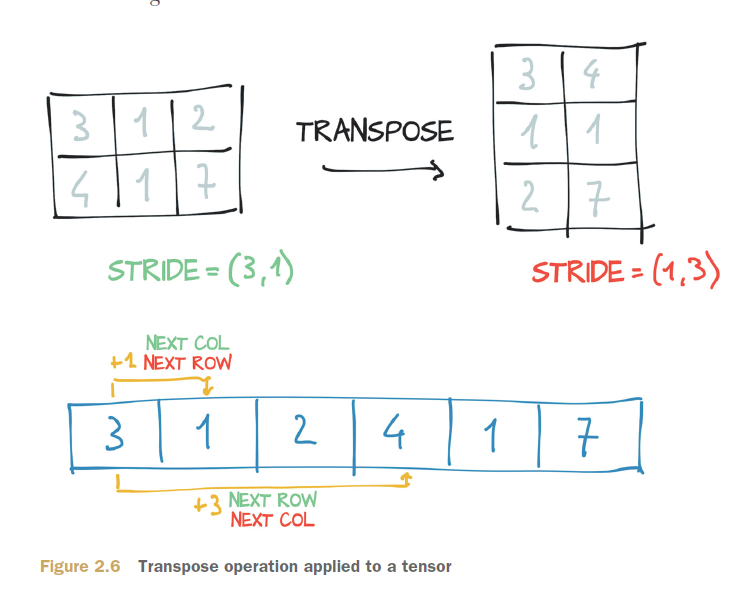 3 1 2
4 1 7
TRANSPOSE
3 4
1 1
2 7
STRIDE = (3,1)
STRIDE = (1,3)
NEXT COL
+1 NEXT ROW
3 1 2 4 1 7
+3 NEXT ROW
NEXT COL
Figure 2.6 Transpose operation applied to a tensor